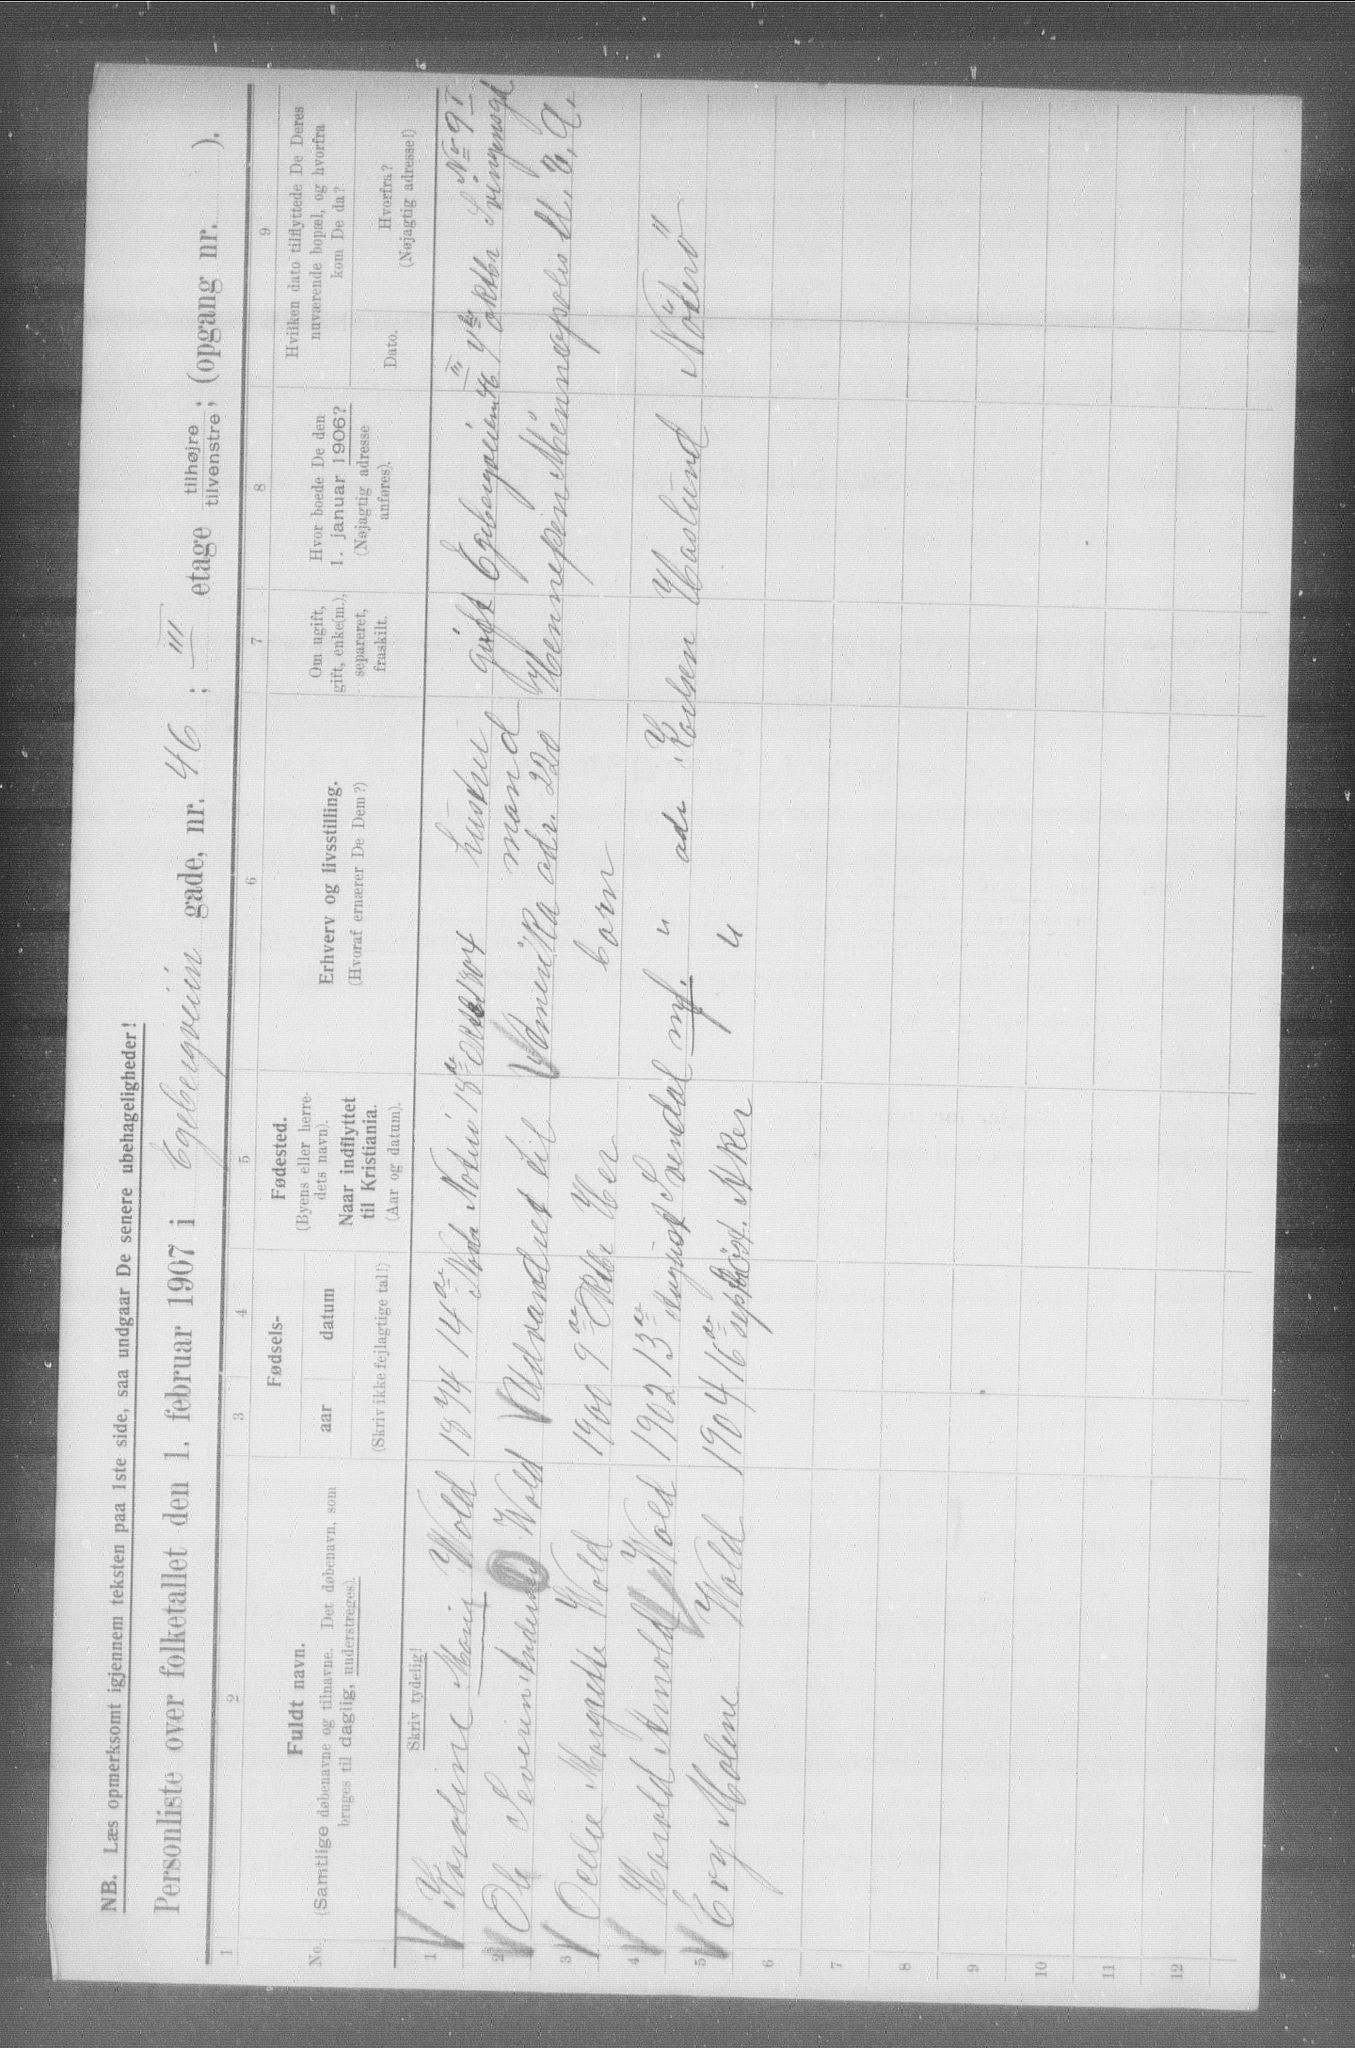 NB. Læs opmerksomt igjennem teksten paa 1ste side, saa undgaar De senere ubehageligheder!
Personliste over folketallet den 1. februar 1907 i Egebergveien gade, nr. 46 ; III etage tilhøjre / tilvenstre ; (opgang nr. ).
1 2 3 4 5 6 7 8 9
No.
Fuldt navn.
(Samtlige døbenavne og tilnavne. Det døbenavn, som
bruges til daglig, understreges).
Fødsels-
aar datum
(Skriv ikke fejlagtige tal!)
Fødested.
(Byens eller herre-
dets navn).
Naar indflyttet
til Kristiania.
(Aar og datum).
Erhverv og livsstilling.
(Hvoraf ernærer De Dem?)
Om ugift,
gift, enke(m.),
separeret,
fraskilt.
Hvor boede De den
1. januar 1906?
(Nøjagtig adresse
anføres).
Hvilken dato tilflyttede De Deres
nuværende bopæl, og hvorfra
kom De da?
Dato.
Hvorfra?
(Nøjagtig adresse!)
Skriv tydelig!
1 Karoline Marie Wold 1874 14de hustru gift Egebergveien 46 III oktbr No 9 I
2 Ole Severin Wold Udvandret til mand
Amerika adr. 220 Hennepin
3 Margrethe Wold 1900 9de Oktbr barn
4 Harold Arnold Wold 1902 13de august Svendal " adr. Haslund Nöterö
5 Wold 1904 16de septbr Aker "
6
7
8
9
10
11
12